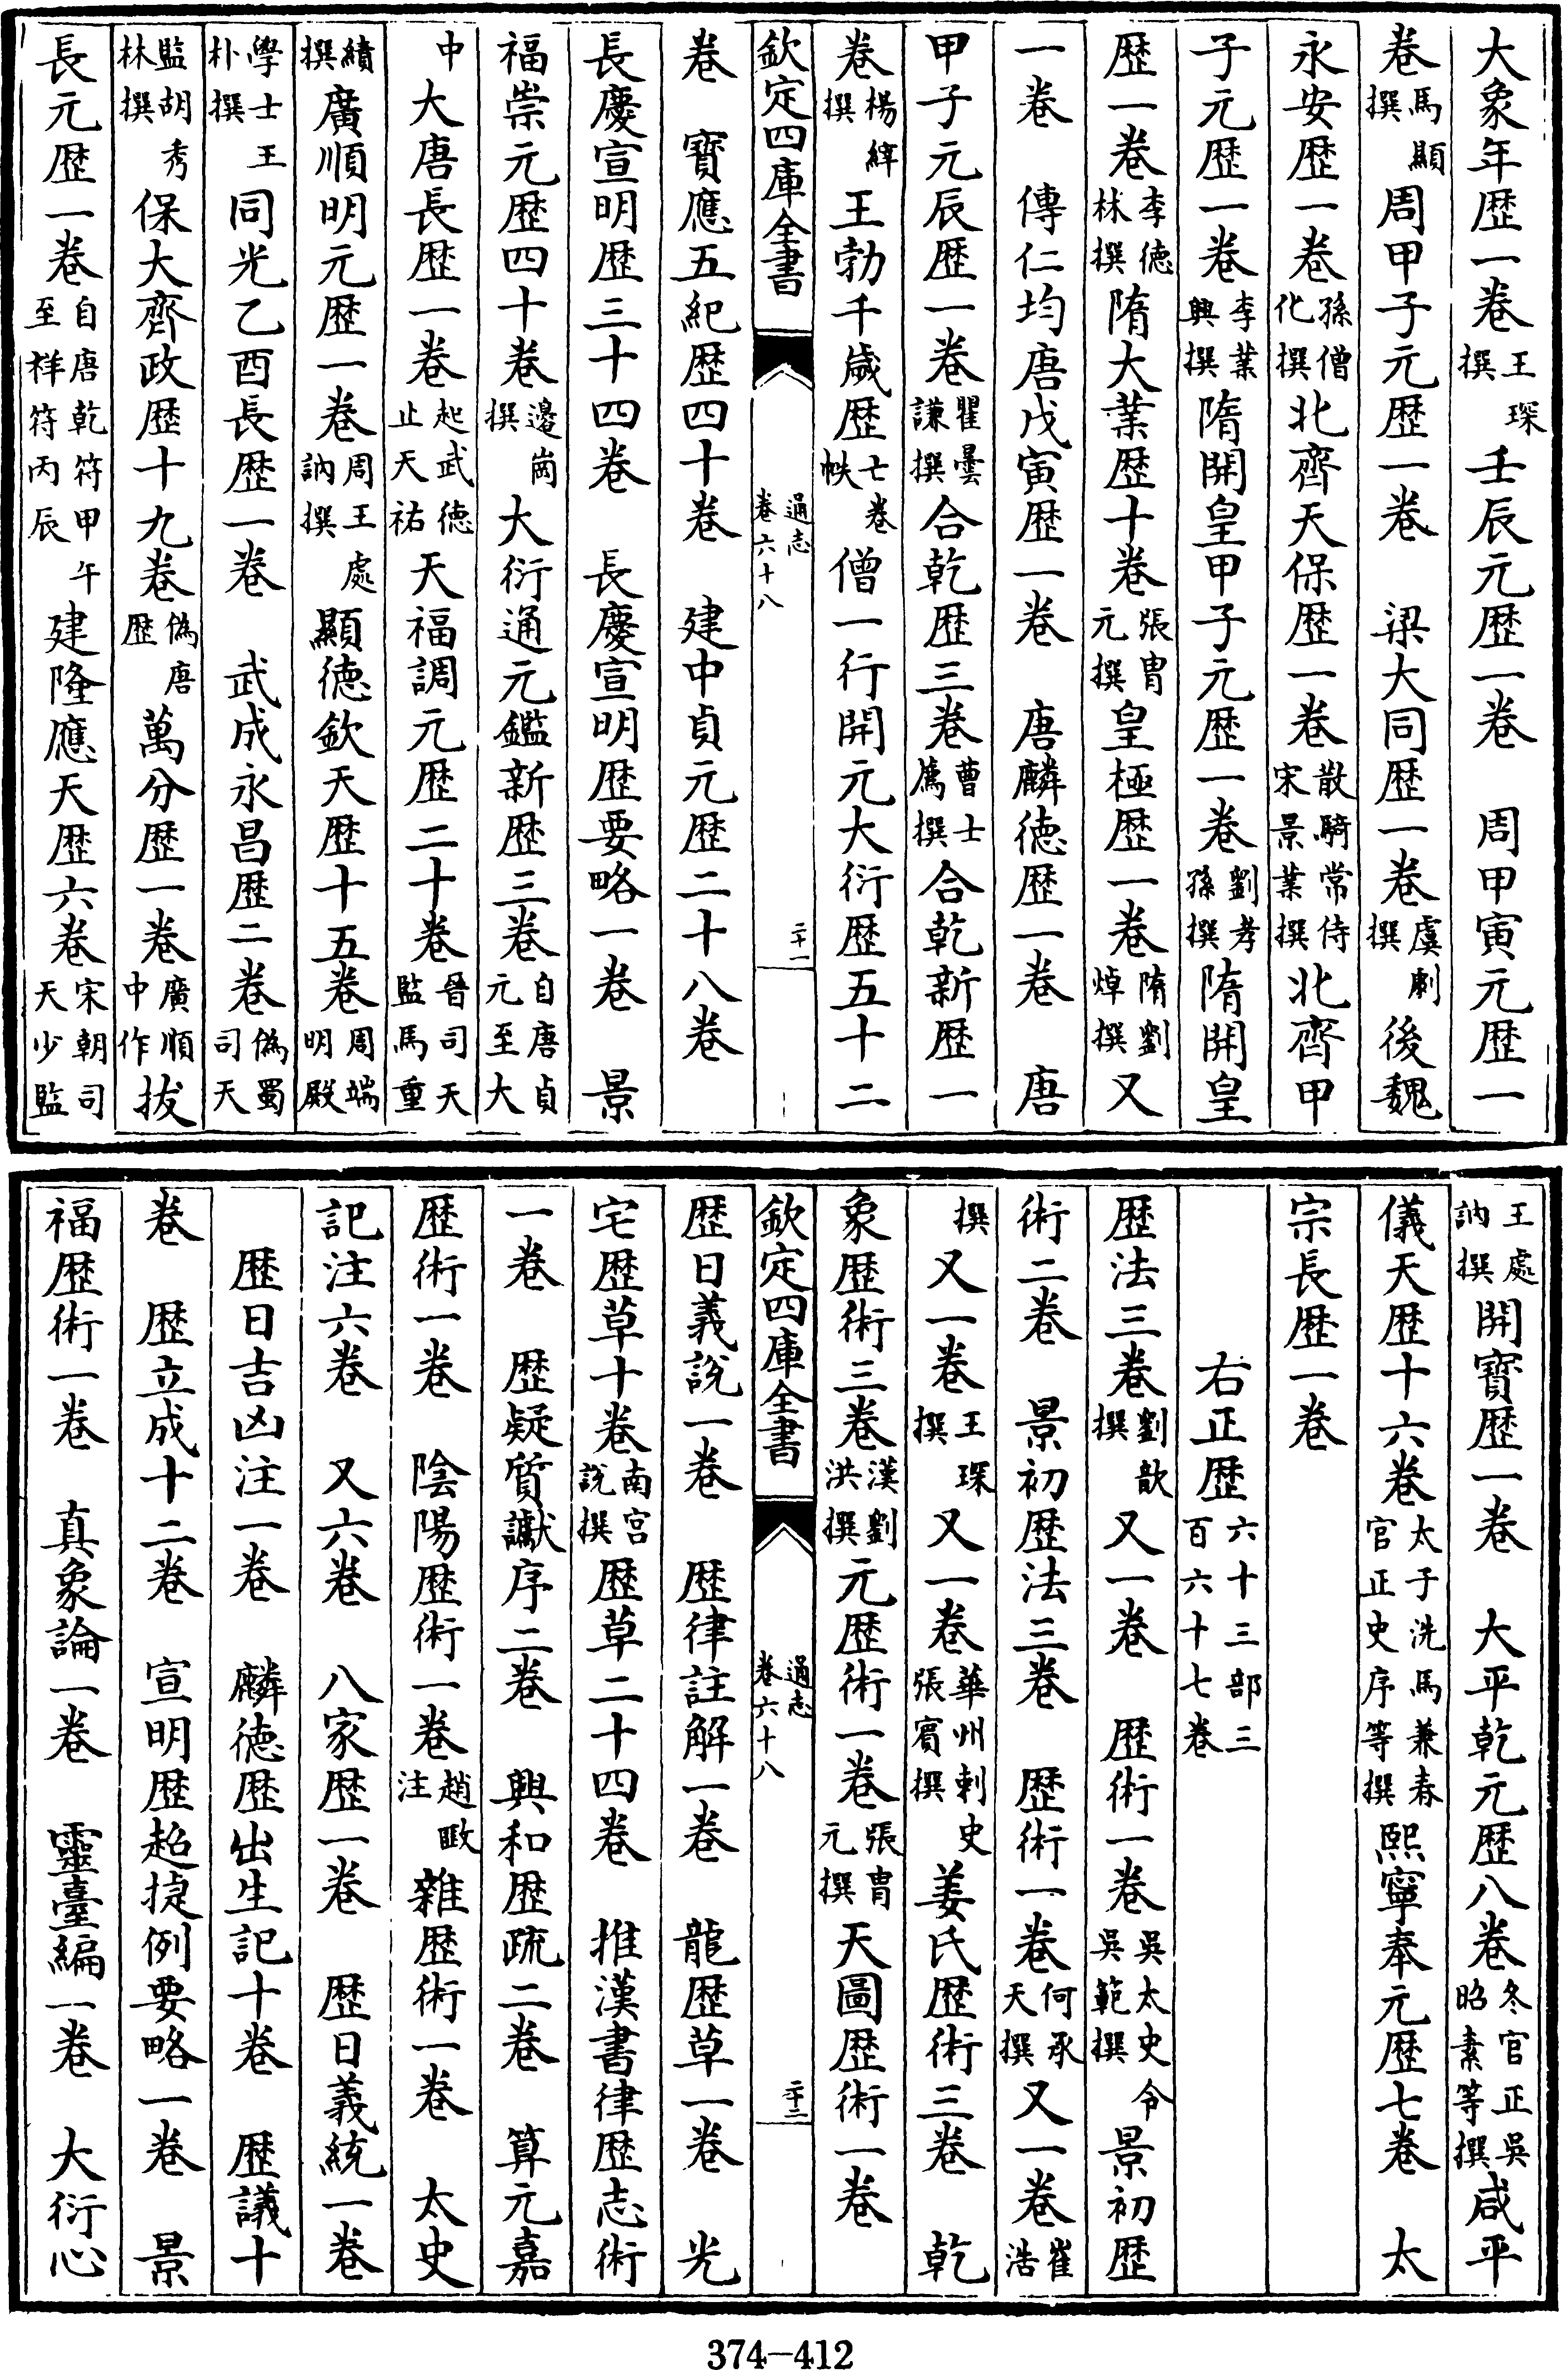 大象年歴一卷王琛撰壬辰元歴一卷 周甲寅元歴一
卷馬顯撰周甲子元歴一卷 梁大同歴一卷虞𠠎撰後魏
永安歴一卷孫僧化撰北齊天保歴一卷散騎常侍宋景業撰北齊甲
子元歴一卷李業興撰隋開皇甲子元歴一卷劉孝孫撰隋開皇
歴一卷李徳林撰隋大業歴十卷張胄元撰皇極歴一卷隋劉焯撰又
一卷 傳仁均唐戊寅歴一卷 唐麟徳歴一卷 唐
甲子元辰歴一卷瞿曇謙撰合乾歴三卷曹士蔿撰合乾新歴一
卷楊緯撰王勃千歳歴七卷帙僧一行開元大衍歴五十二
欽定四庫全書 通志卷六十八 二十一
卷 寳應五紀歴四十卷 建中貞元歴二十八卷
長慶宣明歴三十四卷 長慶宣明歴要略一卷 景
福崇元歴四十卷邊崗撰大衍通元鑑新歴三卷自唐貞元至大
中大唐長歴一卷起武徳止天祐天福調元歴二十卷晉司天監馬重
績撰廣順明元歴一卷周王處訥撰顯徳欽天歴十五卷周端明殿
學士王朴撰同光乙酉長歴一卷 武成永昌歴二卷偽蜀司天
監胡秀林撰保大齊政歴十九卷偽唐歴萬分歴一卷廣順中作拔
長元歴一卷自唐乾符甲午至祥符丙辰建隆應天歴六卷宋朝司天少監
王處訥撰開寳歴一卷 大平乾元歴八卷冬官正吳昭素等撰咸平
儀天歴十六卷太子洗馬兼春官正史序等撰熙寧奉元歴七卷 太
宗長歴一卷
右正歴六十三部三百六十七卷
歴法三卷劉歆撰又一卷 歴術一卷吳太史令吳範撰景初歴
術二卷 景初歴法三卷 歴術一卷何承天撰又一卷崔浩
撰又一卷王琛撰又一卷華州刺史張賔撰姜氏歴術三卷 乾
象歴術三卷漢劉洪撰元歴術一卷張胄元撰天圖歴術一卷
欽定四庫全書 通志卷六十八 二十二
歴日義説一卷 歴律註解一卷 龍歴草一卷 光
宅歴草十卷南宫説撰歴草二十四卷 推漢書律歴志術
一卷 歴疑質讞序二卷 興和歴疏二卷 算元嘉
歴術一卷 隂陽歴術一卷趙𢾾注雜歴術一卷 太史
記注六卷 又六卷 八家歴一卷 歴日義統一卷
歴日吉凶注一卷 麟徳歴出生記十卷 歴議十
卷 歴立成十二卷 宣明歴超捷例要略一卷 景
福歴術一卷 真象論一卷 靈臺編一卷 大衍心
374—412